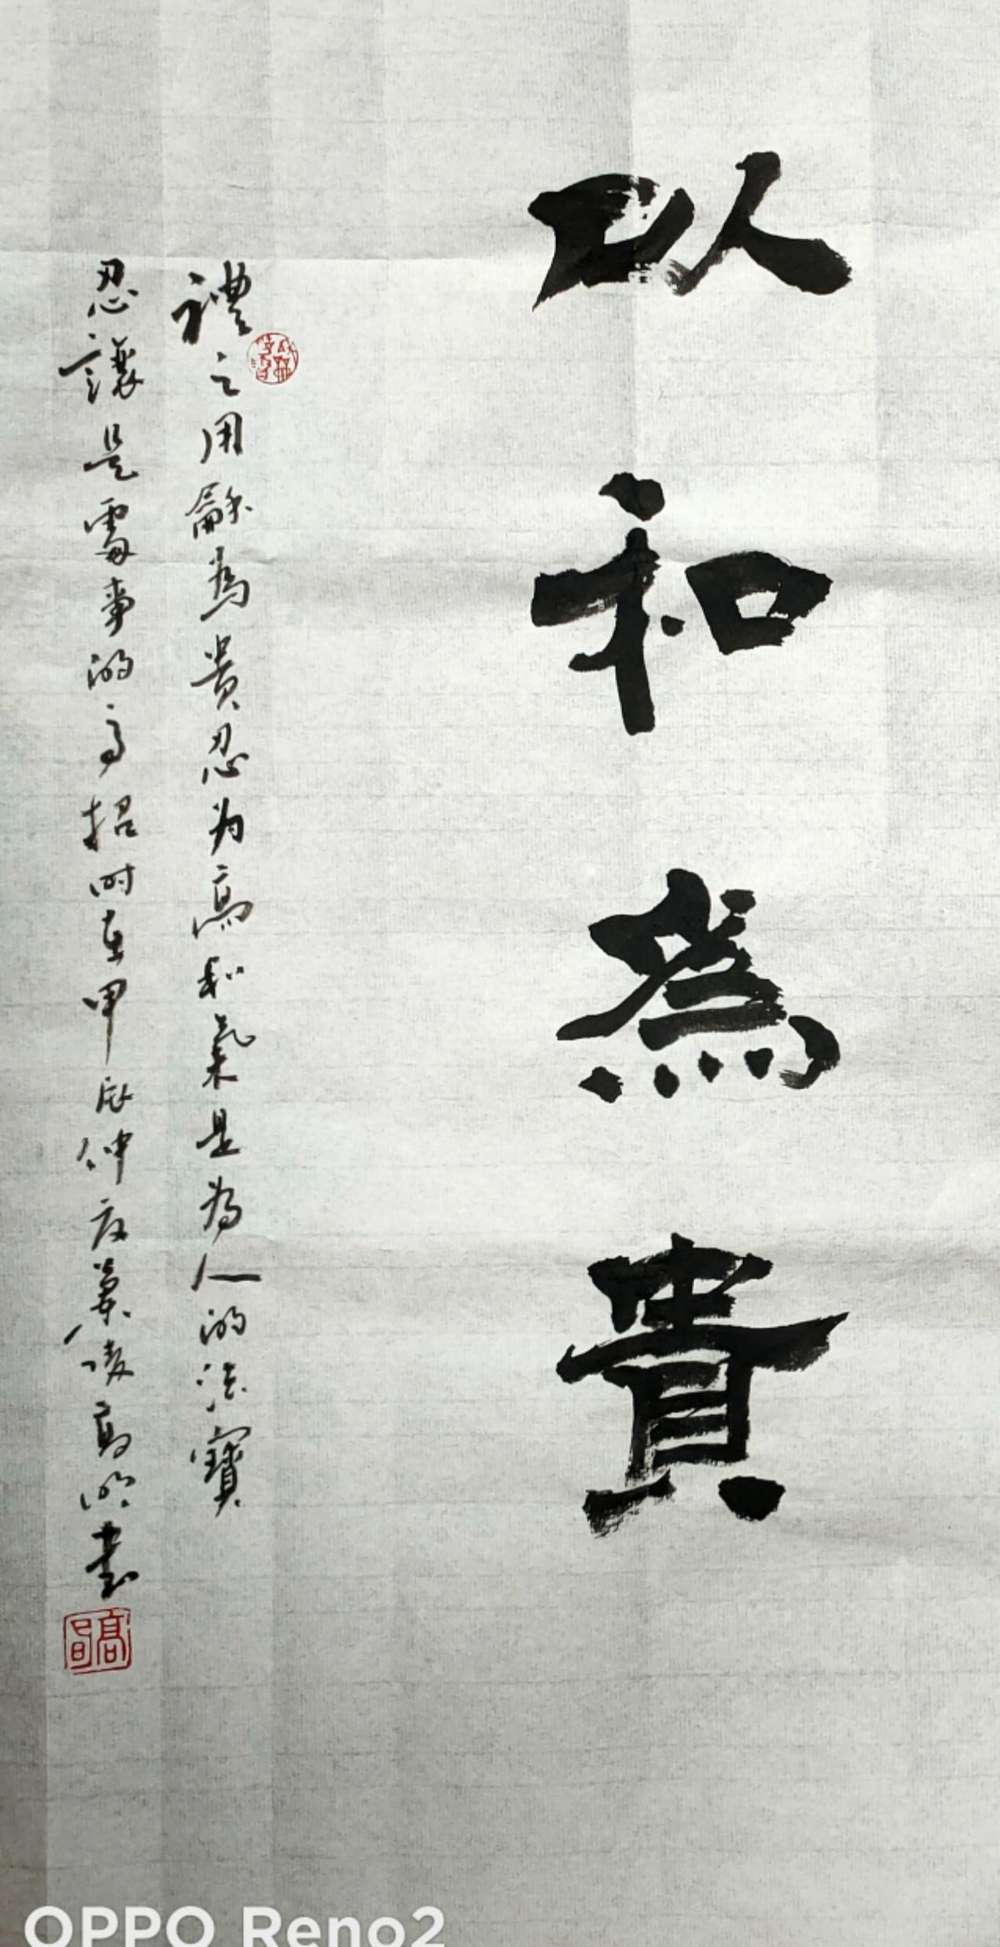 以和為貴
禮之用龢為貴忍为高和氣是為人的法寶
忍讓是處事的高招时在甲辰仲夏蘭陵高明書
OPPO Reno2